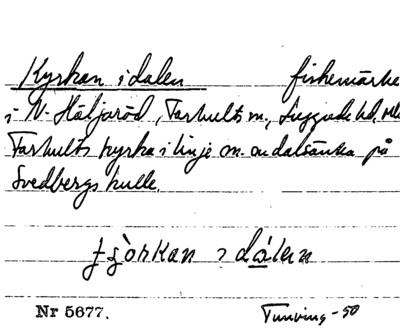 Kyrkan i dalen fiskemärke
i N. Häljaröd, Farhults m., Luggude hd, 
Farhults kyrka i linje m. en dalsänka på
Svedbergs kulle.
i dálen
Nr 5677. Tunving -50